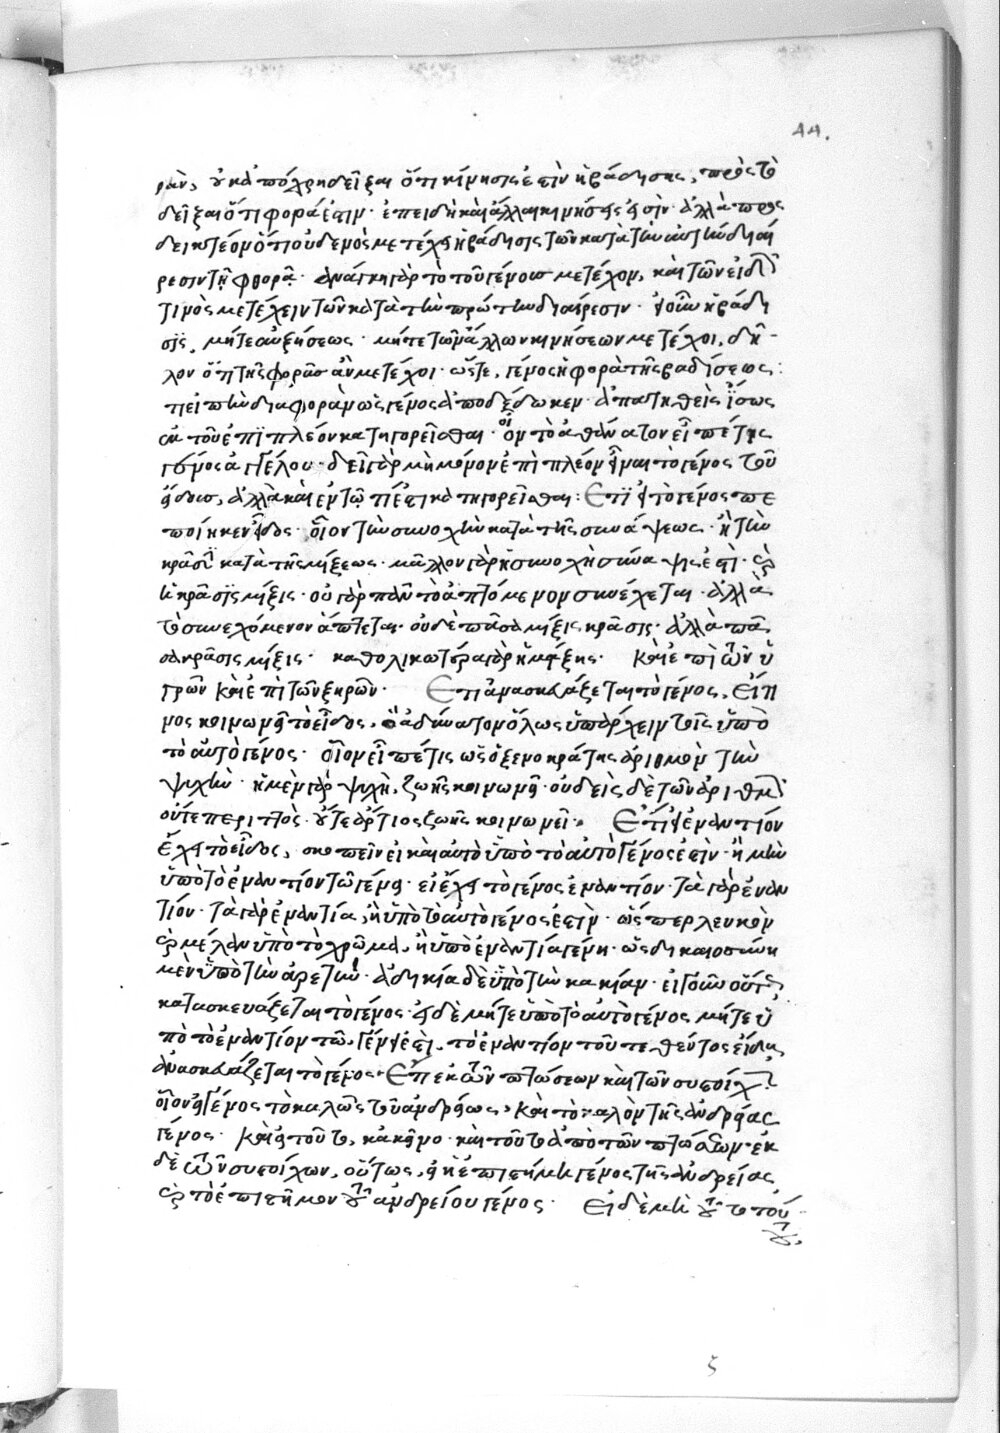 44.
ρὰν, οὐκ ἀπόχρη δεῖξαι ὅτι κίνησις ἐστὶν ἡ βάδισις, πρὸς τὸ
δεῖξαι ὅτι φορά ἐστιν· ἐπειδὴ καὶ ἄλλαι κινήσεις εἰσίν· ἀλλὰ προς
δεικτέον ὅτι οὐδενὸς μετέχει ἡ βάδισις τῶν κατὰ τὴν αὐτὴν διαί
ρεσιν τῇ φορᾷ· ἀνάγκη γὰρ τὸ τοῦ γένους μετέχον, καὶ τῶν εἰδῶν
τινὸς μετέχειν τῶν κατὰ τὴν πρώτην διαίρεσιν· εἰ οὖν ἡ βάδι
σις, μήτε αὐξήσεως· μήτε τῶν ἄλλων κινήσεων μετέχοι, δῆ-
λον ὅτι τῆς φορᾶς ἂν μετέχοι· ὥστε, γένος ἡ φορὰ τῆς βαδίσεως:
τι εἰ τὴν διαφορὰν ὡς γένος ἀποδέδωκεν· ἀπατηθεὶς ἴσως
ἐκ τοῦ ἐπὶ πλέον κατηγορεῖσθαι· οἷον τὸ ἀθάνατον εἴπέ τις
γένος ἀγγέλου· δεῖ γὰρ μὴ μόνον ἐπὶ πλέον εἶναι τὸ γένος τοῦ
εἴδους, ἀλλὰ καὶ ἐν τῷ τί ἐστι κατηγορεῖσθαι: Ἔτι εἰ τὸ γένος πε
ποίηκεν εἶδος· οἷον τὴν συνοχὴν κατὰ τῆς συνάψεως· ἢ τὴν
κρᾶσιν κατὰ τῆς μίξεως· μᾶλλον γὰρ ἡ συνοχὴ σύναψις ἐστὶ· καὶ
ἡ κρᾶσις μίξις· οὐ γὰρ πᾶν τὸ ἁπτόμενον συνέχεται· ἀλλὰ
τὸ συνεχόμενον ἅπτεται· οὐδὲ πᾶσα μίξις κρᾶσις· ἀλλὰ πᾶ
σα κρᾶσις μίξις· καθολικωτέρα γὰρ ἡ μίξης· καὶ ἐπὶ τῶν ὑ
γρῶν καὶ ἐπὶ τῶν ξηρῶν· Ἔτι ἀνασκευάζεται τὸ γένος, εἴ τι
νος κοινωνεῖ τὸ εἶδος, ὃ ἀδύνατον ὅλως ὑπάρχειν τοῖς ὑπὸ
τὸ αὐτὸ γένος· οἷον εἴπέ τις ὡς ὁ ξενοκράτης ἀριθμὸν τὴν
ψυχὴν· ἡ μὲν γὰρ ψυχὴ, ζωῆς κοινωνεῖ· οὐδεὶς δὲ τῶν ἀριθμῶν
οὔτε περιττὸς· οὔτε ἄρτιος ζωῆς κοινωνεῖ· Ἔτι εἰ ἐναντίον
ἔχει τὸ εἶδος, σκοπεῖν εἰ καὶ αὐτὸ ὑπὸ τὸ αὐτὸ γένος ἐστὶν· ἢ μὴν
ὑπὸ τὸ ἐναντίον τῷ γένει· εἰ ἔχει τὸ γένος ἐναντίον· τὰ γὰρ ἐναν
τίον· τὰ γὰρ ἐναντία, ἢ ὑπὸ τὸ αὐτὸ γένος ἐστὶν· ὥσπερ λευκὸν
καὶ μέλαν ὑπὸ τὸ χρῶμα, ἢ ὑπὸ ἐναντία γένη· ὡς δικαιοσύνη
μὲν ὑπὸ τὴν ἀρετὴν· ἀδικία δὲ ὑπὸ τὴν κακίαν· εἰ γοῦν οὕτως
κατασκευάζεται τὸ γένος· εἰ δὲ μήτε ὑπὸ τὸ αὐτὸ γένος μήτε ὑ
πὸ τὸ ἐναντίον τῷ γένει ἐστὶ, τὸ ἐναντίον τοῦ τεθέντος εἴδους
ἀνασκευάζεται τὸ γένος· Ἔτι ἐκ τῶν πτώσεων καὶ τῶν συστοίχων
οἷον εἰ γένος τὸ καλῶς τοῦ ἀνδρείως, καὶ τὸ καλὸν τῆς ἀνδρείας
γένος· καὶ εἰ τοῦτο, κακεῖνο· καὶ τοῦτο ἀπὸ τῶν πτώσεων· ἐκ
δὲ τῶν συστοίχων, οὕτως, εἰ ἡ ἐπιστήμη γένος τῆς ἀνδρείας,
καὶ τὸ ἐπιστῆμον τοῦ ἀνδρείου γένος· Εἰ δὲ μὴ τοῦτο τού
του,
ζ